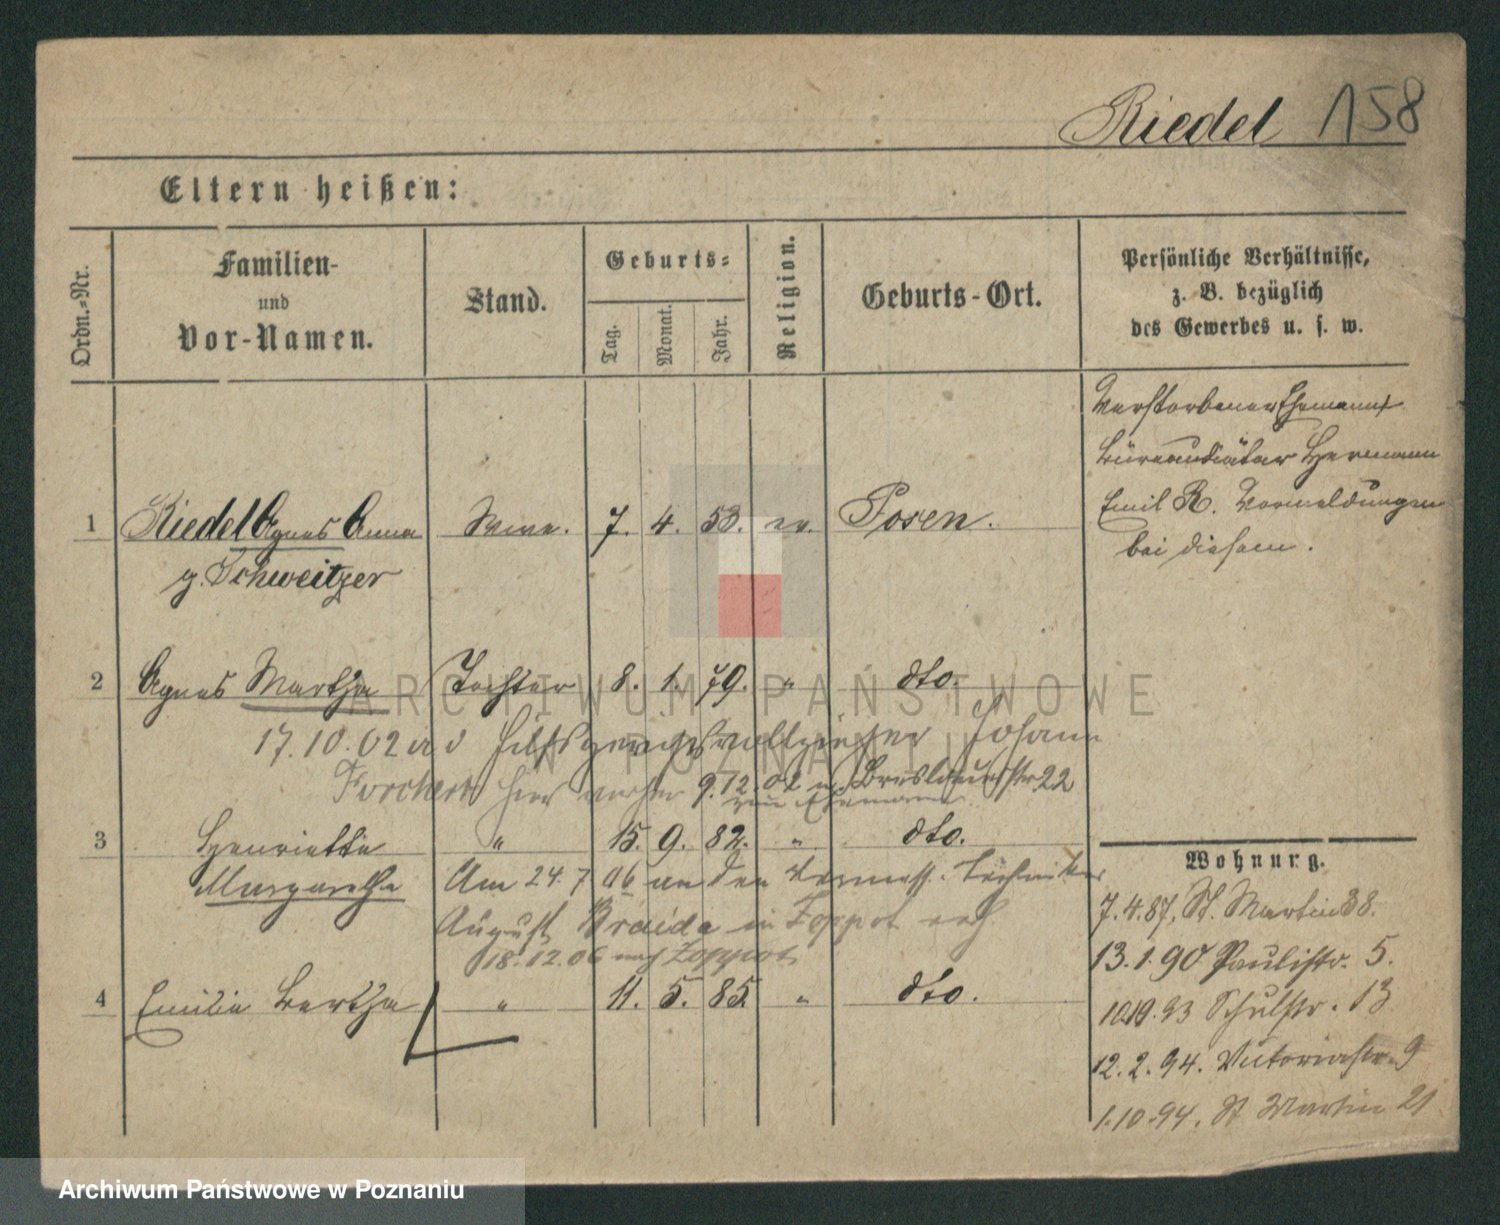 Riedel 158
Eltern heißen:
Ordn.-Nr.
Familien-
und
Vor-Namen.
Stand.
Geburts-
Tag.
Monat.
Jahr.
Religion.
Geburts-Ort.
Persönliche Verhältnisse,
z. B. bezüglich
des Gewerbes u. s. w.
Verstorbener Ehemann
Büreaudiätar Hermann
Emil R. Vormeldungen
bei diesem.
1 Riedel Agnes Anna Wwe. 7. 4. 53. ev. Posen.
g. Schweitzer
2 Agnes Martha Tochter 8. 1. 79. " dto.
17.10.02 an d Hilfsgerichtsvollzieher Johann
hier vorher 9.12.02 n. Breslauerstr 22
zum Ehemann
3 Henriette " 15. 9. 82. " dto.
Margarethe Am 24. 7 06 an den Vermess. Techniker
August Braida in Zoppot verh
18.12.06 nach Zoppot
4 Emilie Bertha " 11. 5. 85. " dto.
Wohnung.
7.4.87, St. Martin 38.
13.1.90 Paulistr. 5.
Schulstr. 13
12.2.94. Victoriastr. 9
1.10.94. St Martin 21
ARCHIWUM PAŃSTWOWE
W POZNANIU
Archiwum Państwowe w Poznaniu